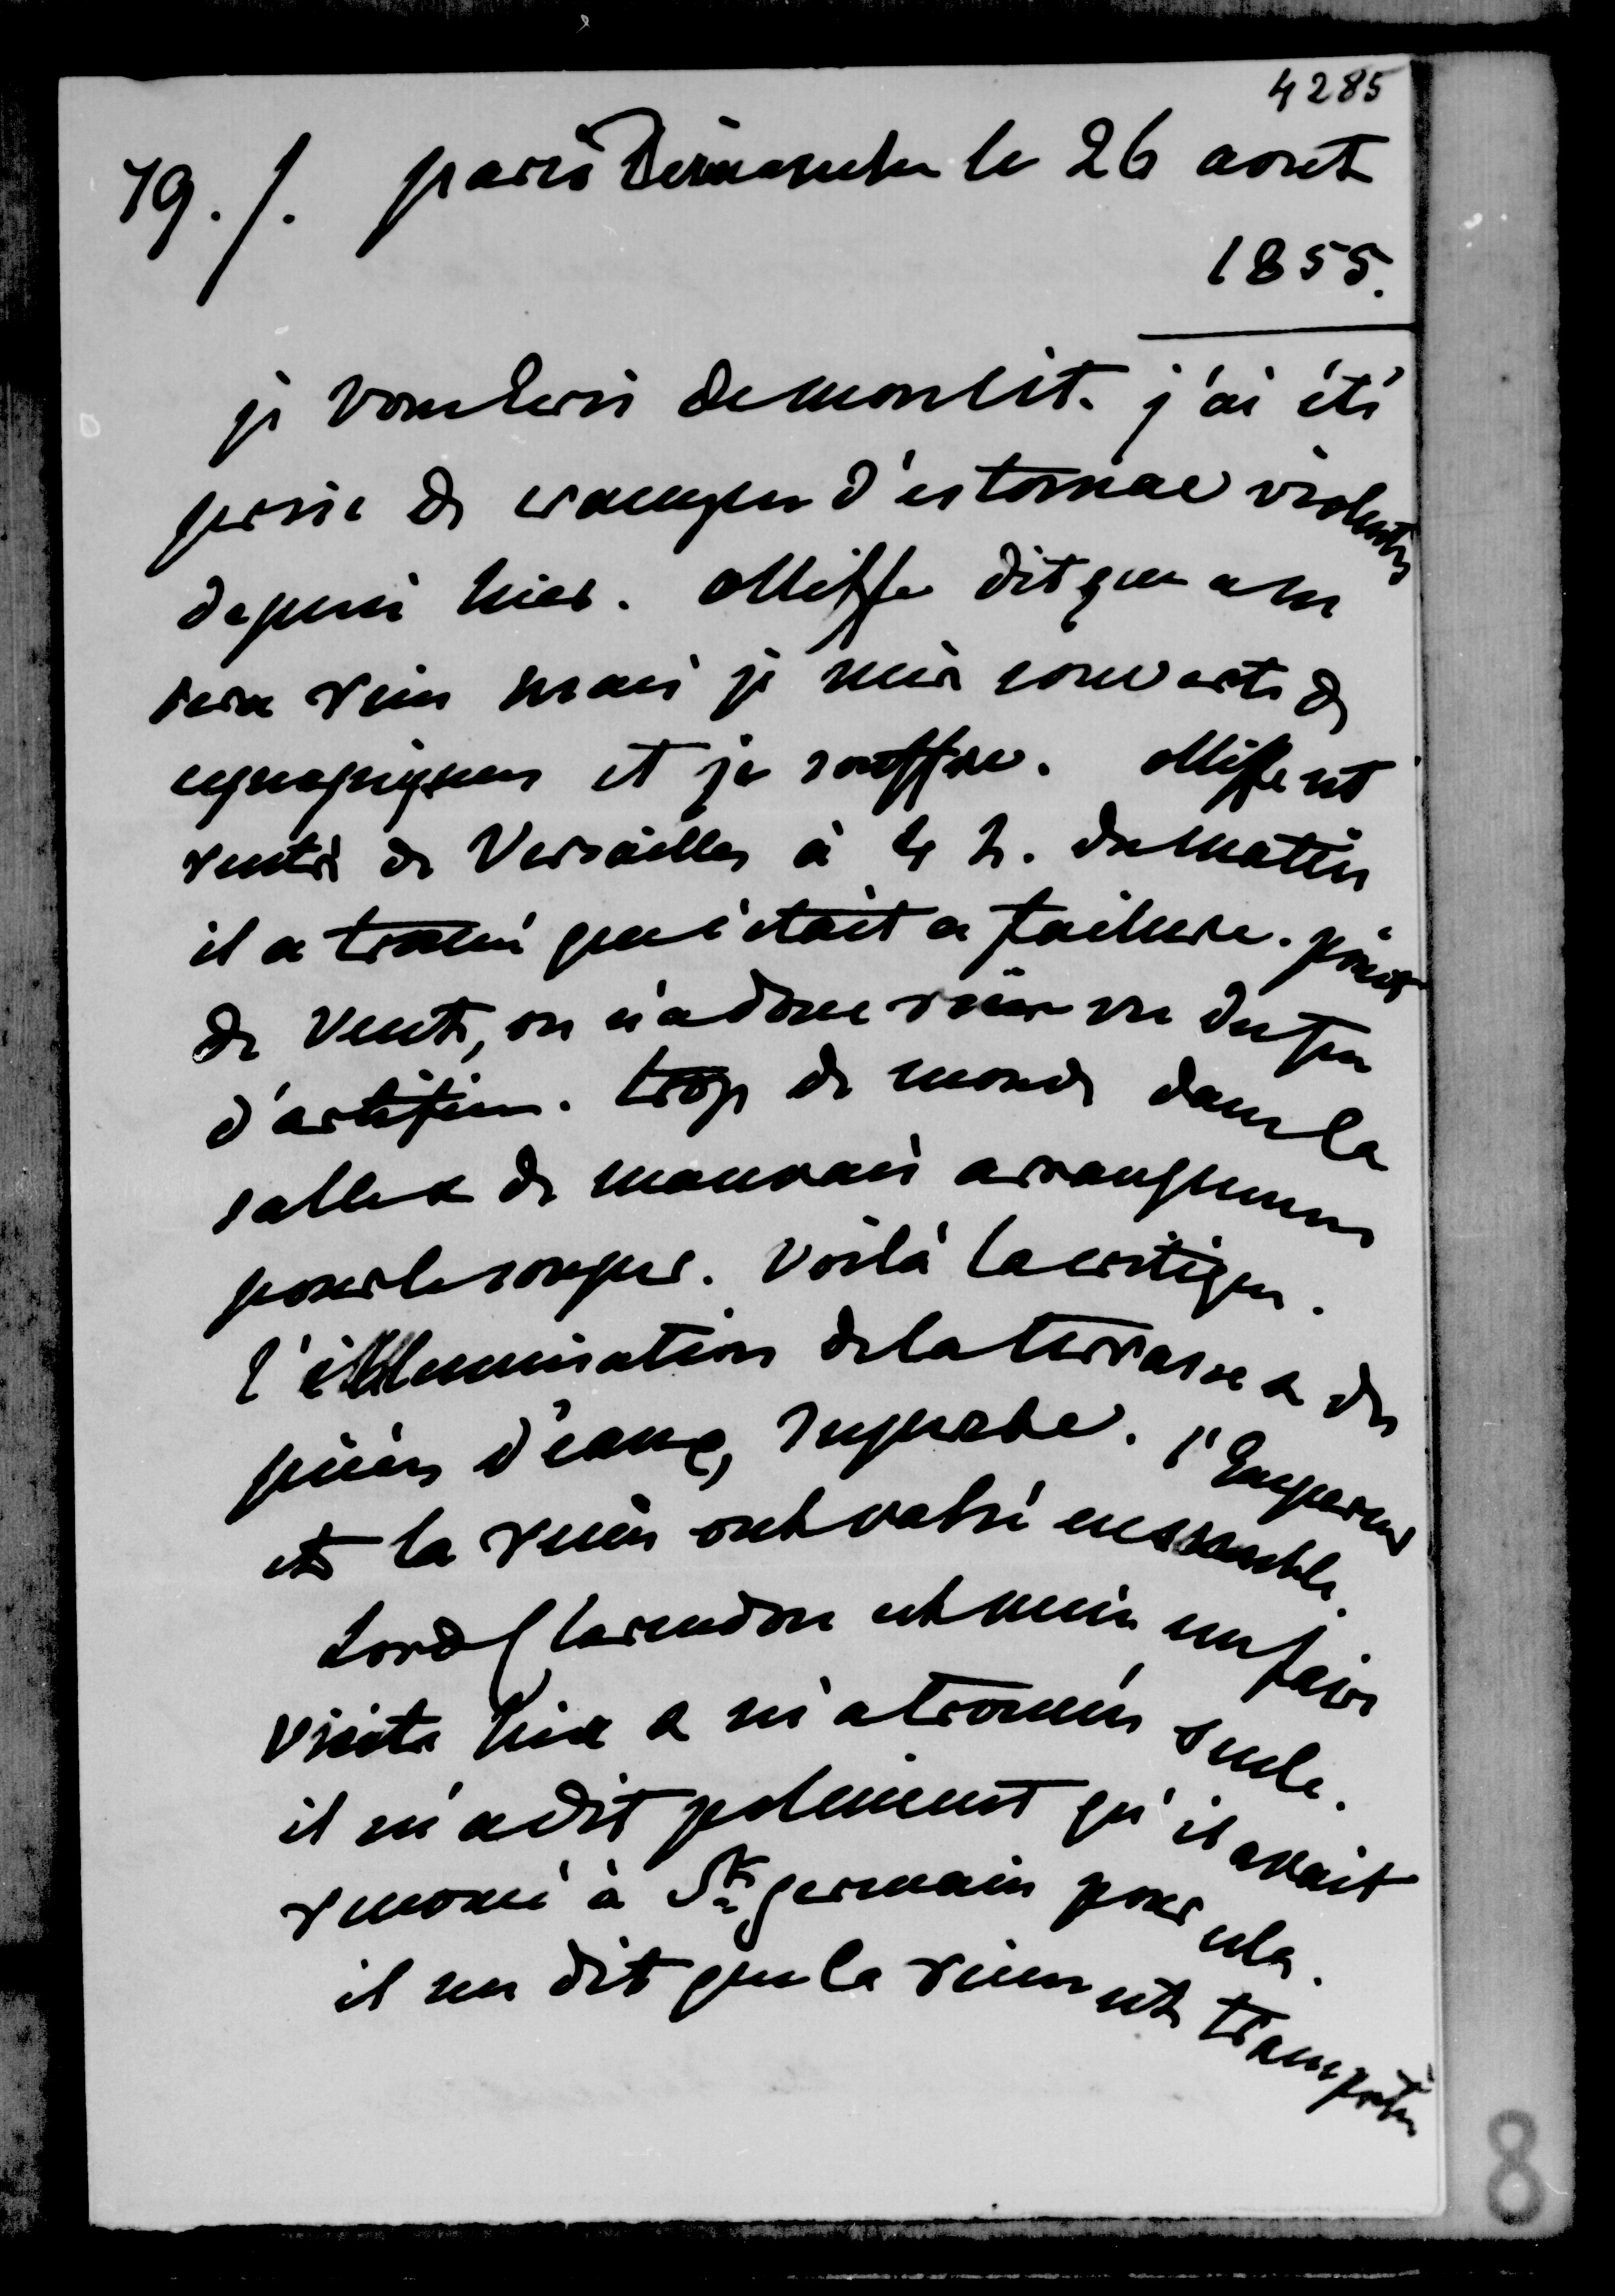 4285
79./. paris Dimanche le 26 aout
1855.
je vous écris de mon lit. j'ai été
prise de crampes d'estomac violentes
depuis hier. Oliffe dit que ce ne
sera rien mais je suis couverte de
cynapismes et je souffre. Oliffe est
rentré de Versailles à 4 h. du matin
il a trouvé que c'était a failure. point
de vent, on n'a donc rien vu du feu
d'artifice. trop de monde dans la
salle & de mauvais arrangemens
pour le souper. Voilà la critique.
l'illumination de la terrasse & des
pièces d'eaux, superbe. l'Empereur
et la reine ont valsé ensemble.
Lord Clarendon est venu me faire
visite hier & m'a trouvée seule.
il m'a dit poliment qu'il avait
renoncé à St germain pour cela.
il me dit que la reine est transportée
8